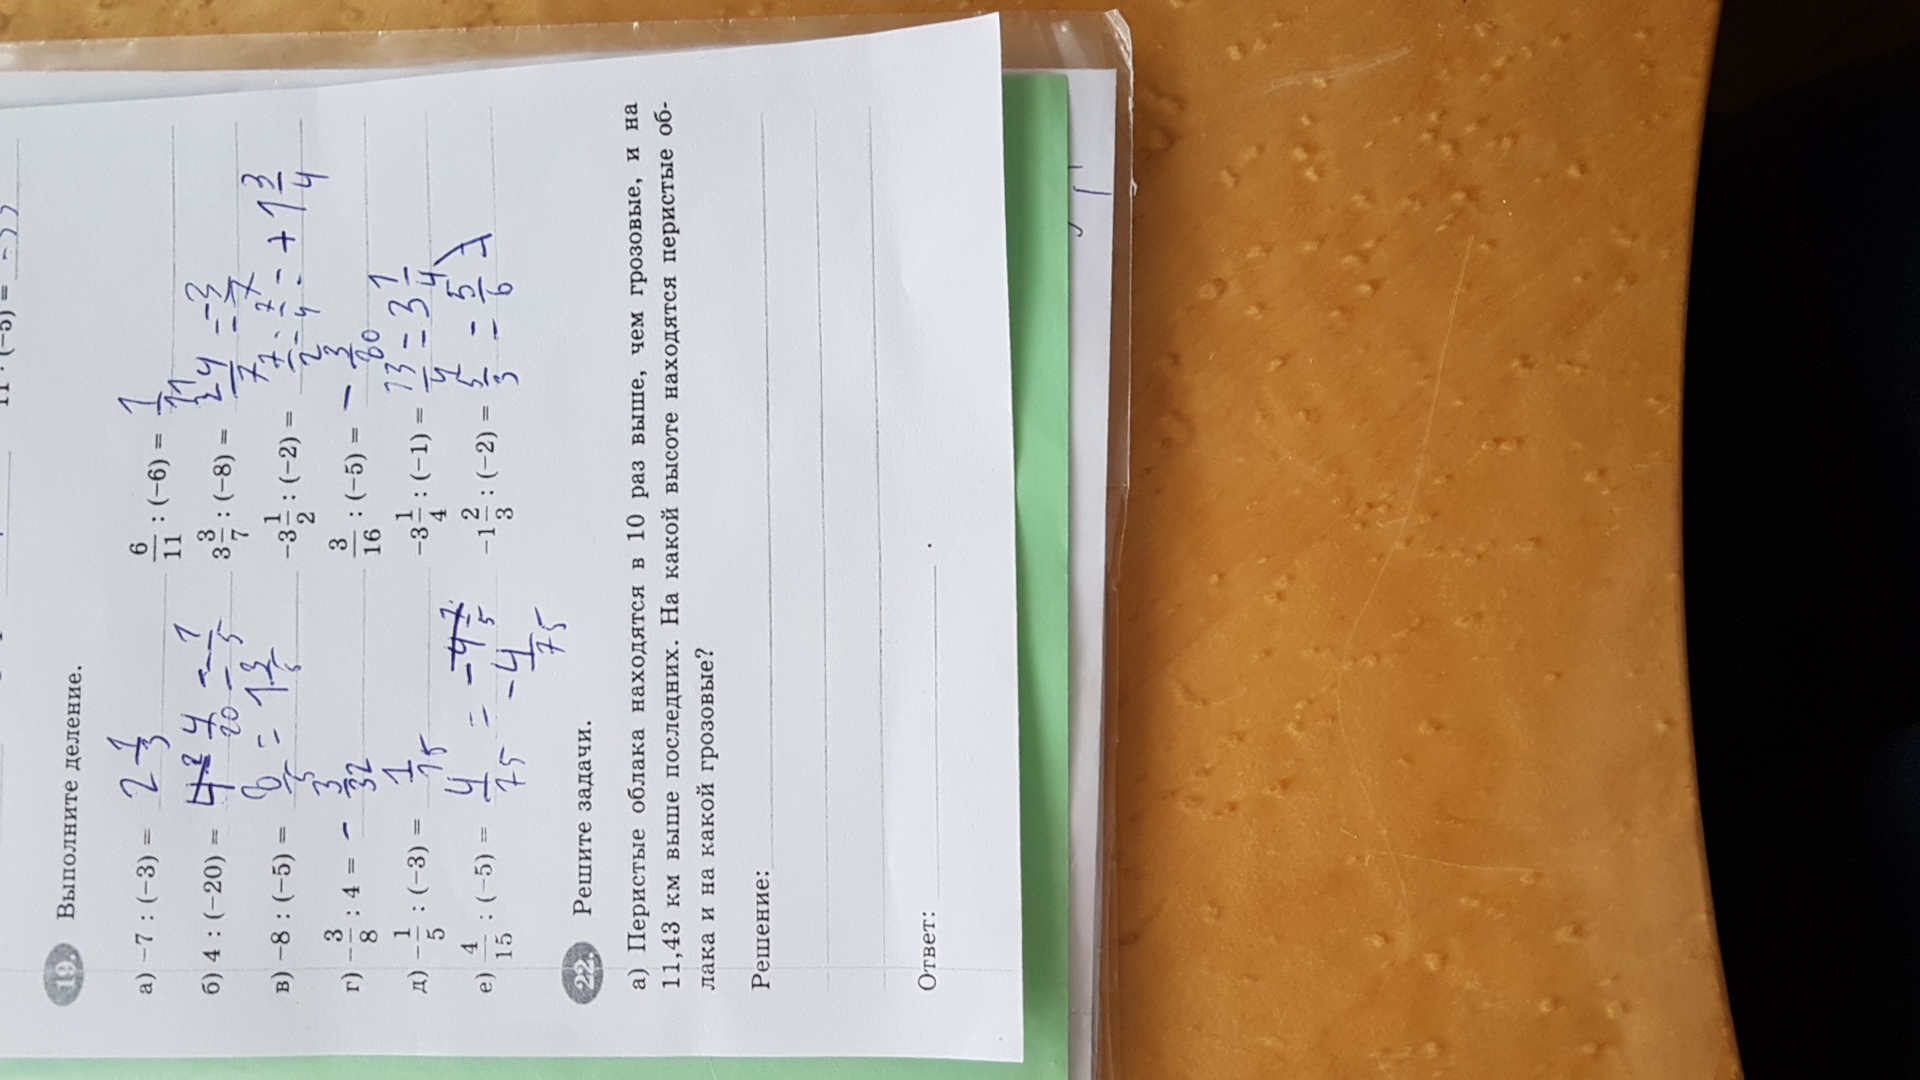 11 : (−5) =
19. Выполните деление.
а) −7 : (−3) = 2 1/3
6/11 : (−6) = 1/11
б) 4 : (−20) = 4/20 = −1/5
3 3/7 : (−8) = 24/7 = −3/7
в) −8 : (−5) = 8/5 = 1 3/5
−3 1/2 : (−2) = 7/2 : 2 = 7/4 = +1 3/4
г) −3/8 : 4 = −3/32
3/16 : (−5) = −3/80
д) −1/5 : (−3) = 1/15
−3 1/4 : (−1) = 13/4 = 3 1/4
е) 4/15 : (−5) = 4/75 = −4/75
−1 2/3 : (−2) = 5/3 = 5/6
22. Решите задачи.
а) Перистые облака находятся в 10 раз выше, чем грозовые, и на
11,43 км выше последних. На какой высоте находятся перистые об-
лака и на какой грозовые?
Решение:
Ответ: .